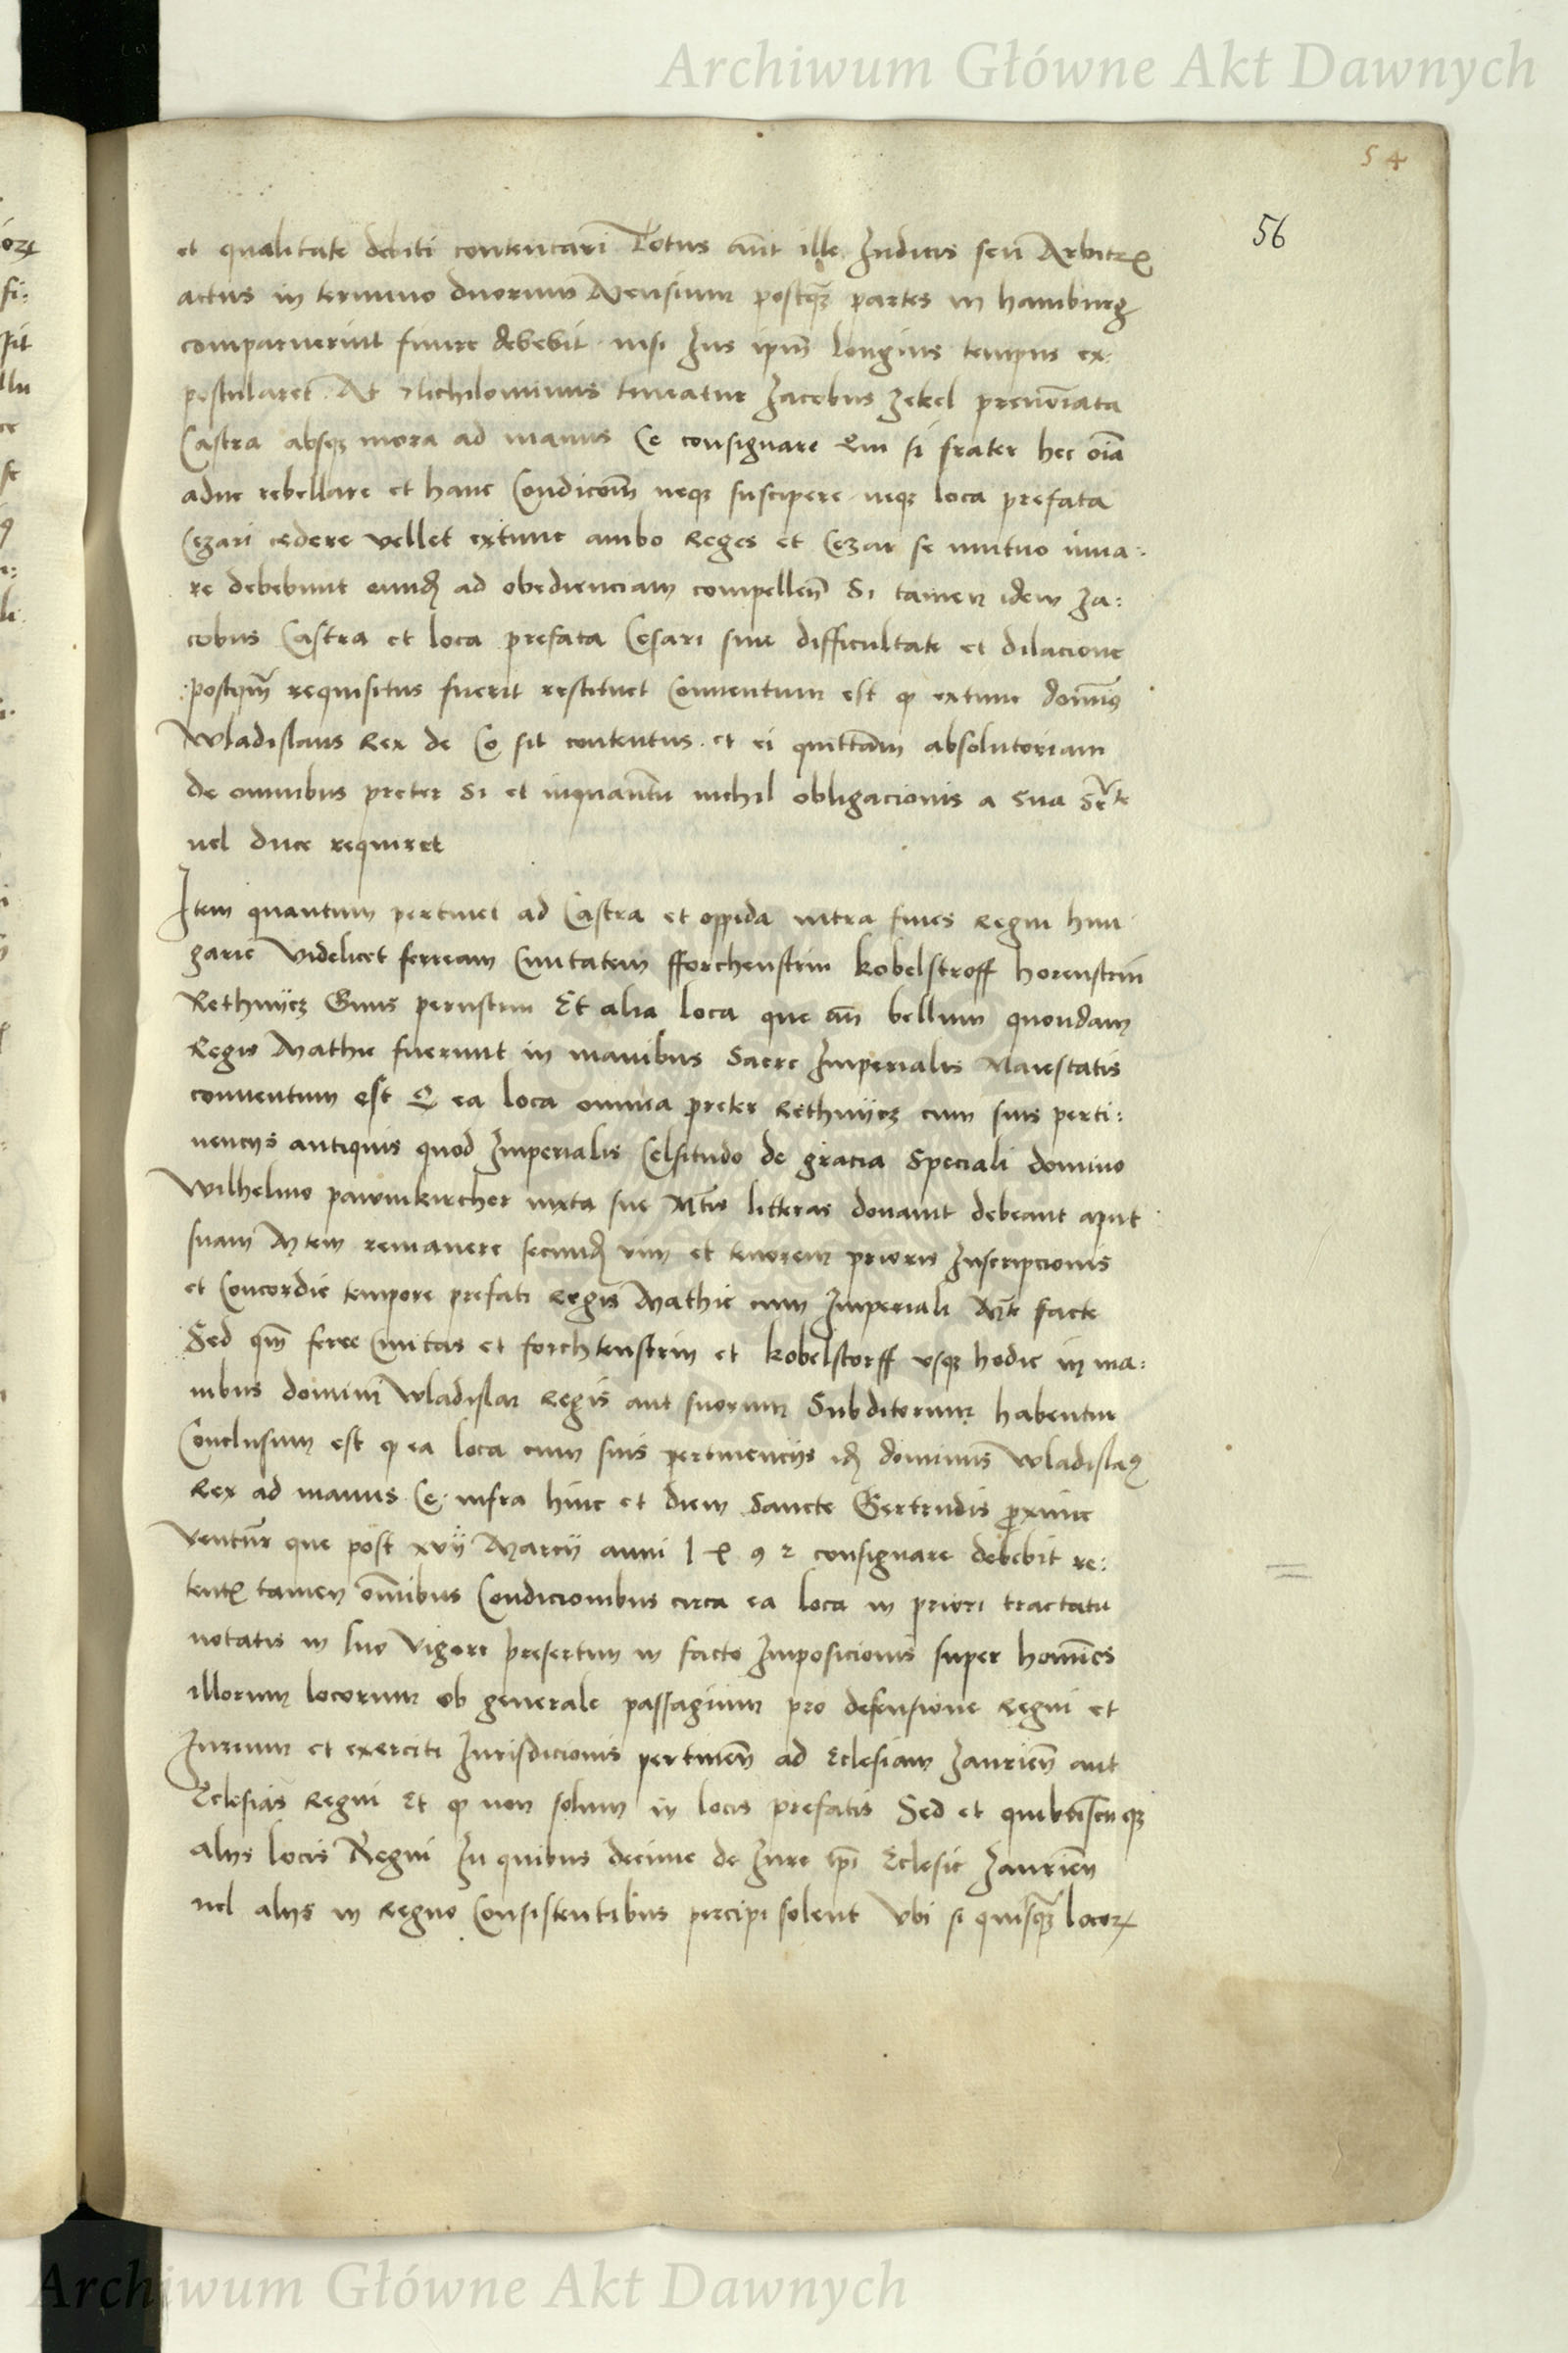 Archiwum Główne Akt Dawnych
54
56
et qualitate debiti contentari Totus aut ille Judicis seu Arbitr
actus in termino duorum Mensium postq̃ partes in hamburg
comparuerint finire debebit nisi Jus ipm̃ longius tempus ex:
postularet At Nichilominus teneatur Jacobus zekel prenoiata
Castra absq mora ad manus Ce consignare Qui si frater hec oia
aduc rebellare et hanc Condicoem neq suscipere neq loca prefata
Cezari cedere vellet extunc ambo Reges et Cezar se mutuo iuua:
re debebunt eund ad obedienciam compellen Si tamen idem Ja:
cobus Castra et loca prefata Cesari sine difficultate et dilacione
postqm̃ requisitus fuerit restituet Conuentum est q extunc domis
Wladislaus Rex de Co sit contentus et ei quittam absolutoriam
de omnibus preter Si et inquantu nichil obligacionis a Sua Srte
uel duce requiret
Item quantum pertinet ad Castra et oppida intra fines Regni hun
garie Videlicet ferream Ciuitatem fforchenstein kobelstroff horenstein
Rethnijcz Guns pernstein Et alia loca que an bellum quondam
Regis Mathie fuerunt in manibus Sacre Imperialis Maiestatis
conuentum est Q ea loca omnia preter Rethnijcz cum suis perti:
nencijs antiquis quod Imperialis Celsitudo de gracia Speciali domino
Wilhelmo pawmkircher iuxta sue Mtis litteras donauit debeant aput
suam Mtem remanere secund vim et tenorem prioris Inscripcionis
et Concordie tempore prefati Regis Mathie cum Imperiali Mte facte
Sed qm̃ ferree Ciuitas et forchtenstein et kobelstorff vsq hodie in ma:
nibus domini Wladislai Regis aut suorum Subditorum habentur
Conclusum est q ea loca cum suis pertinencijs id dominus Wladislaus
Rex ad manus Ce infra hinc et diem Sancte Gertrudis proxime
ventur que post xvij Marcij anni 1 4 9 2 consignare debebit re:
tent tamen omibus Condicionibus circa ea loca in priori tractatu
notatis in suo Vigore presertim in facto Imposicionis super homies
illorum locorum ob generale passagium pro defensione Regni et
Jurium et exerciti Jurisdicionis pertinen ad Eclesiam Jaurien aut
Eclesias Regni Et q non solum in locis prefatis Sed et quibuscu q
alijs locis Regni In quibus decime de Jure ipi Eclesie Jaurien
uel alijs in Regno Consistentibus percipi solent Vbi si quisq̃ locor
Archiwum Główne Akt Dawnych